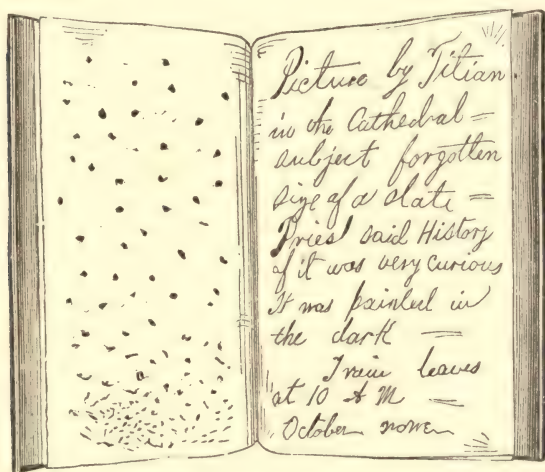 Picture by Titian
in the Cathedral =
subject forgotten
size of a slate =
Priest said History
of it was very curious
It was painted in
the dark —
Train leaves
at 10 A M —
October